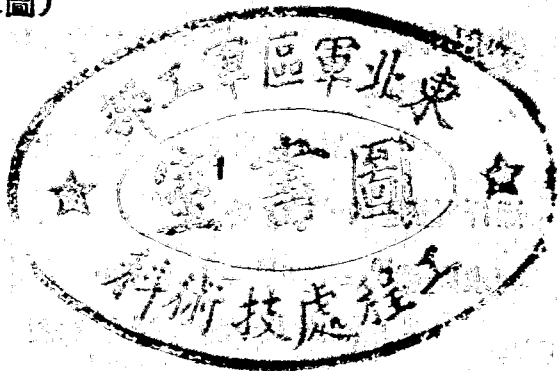 圖)
東北軍區軍工
圖書室
工程處技術科